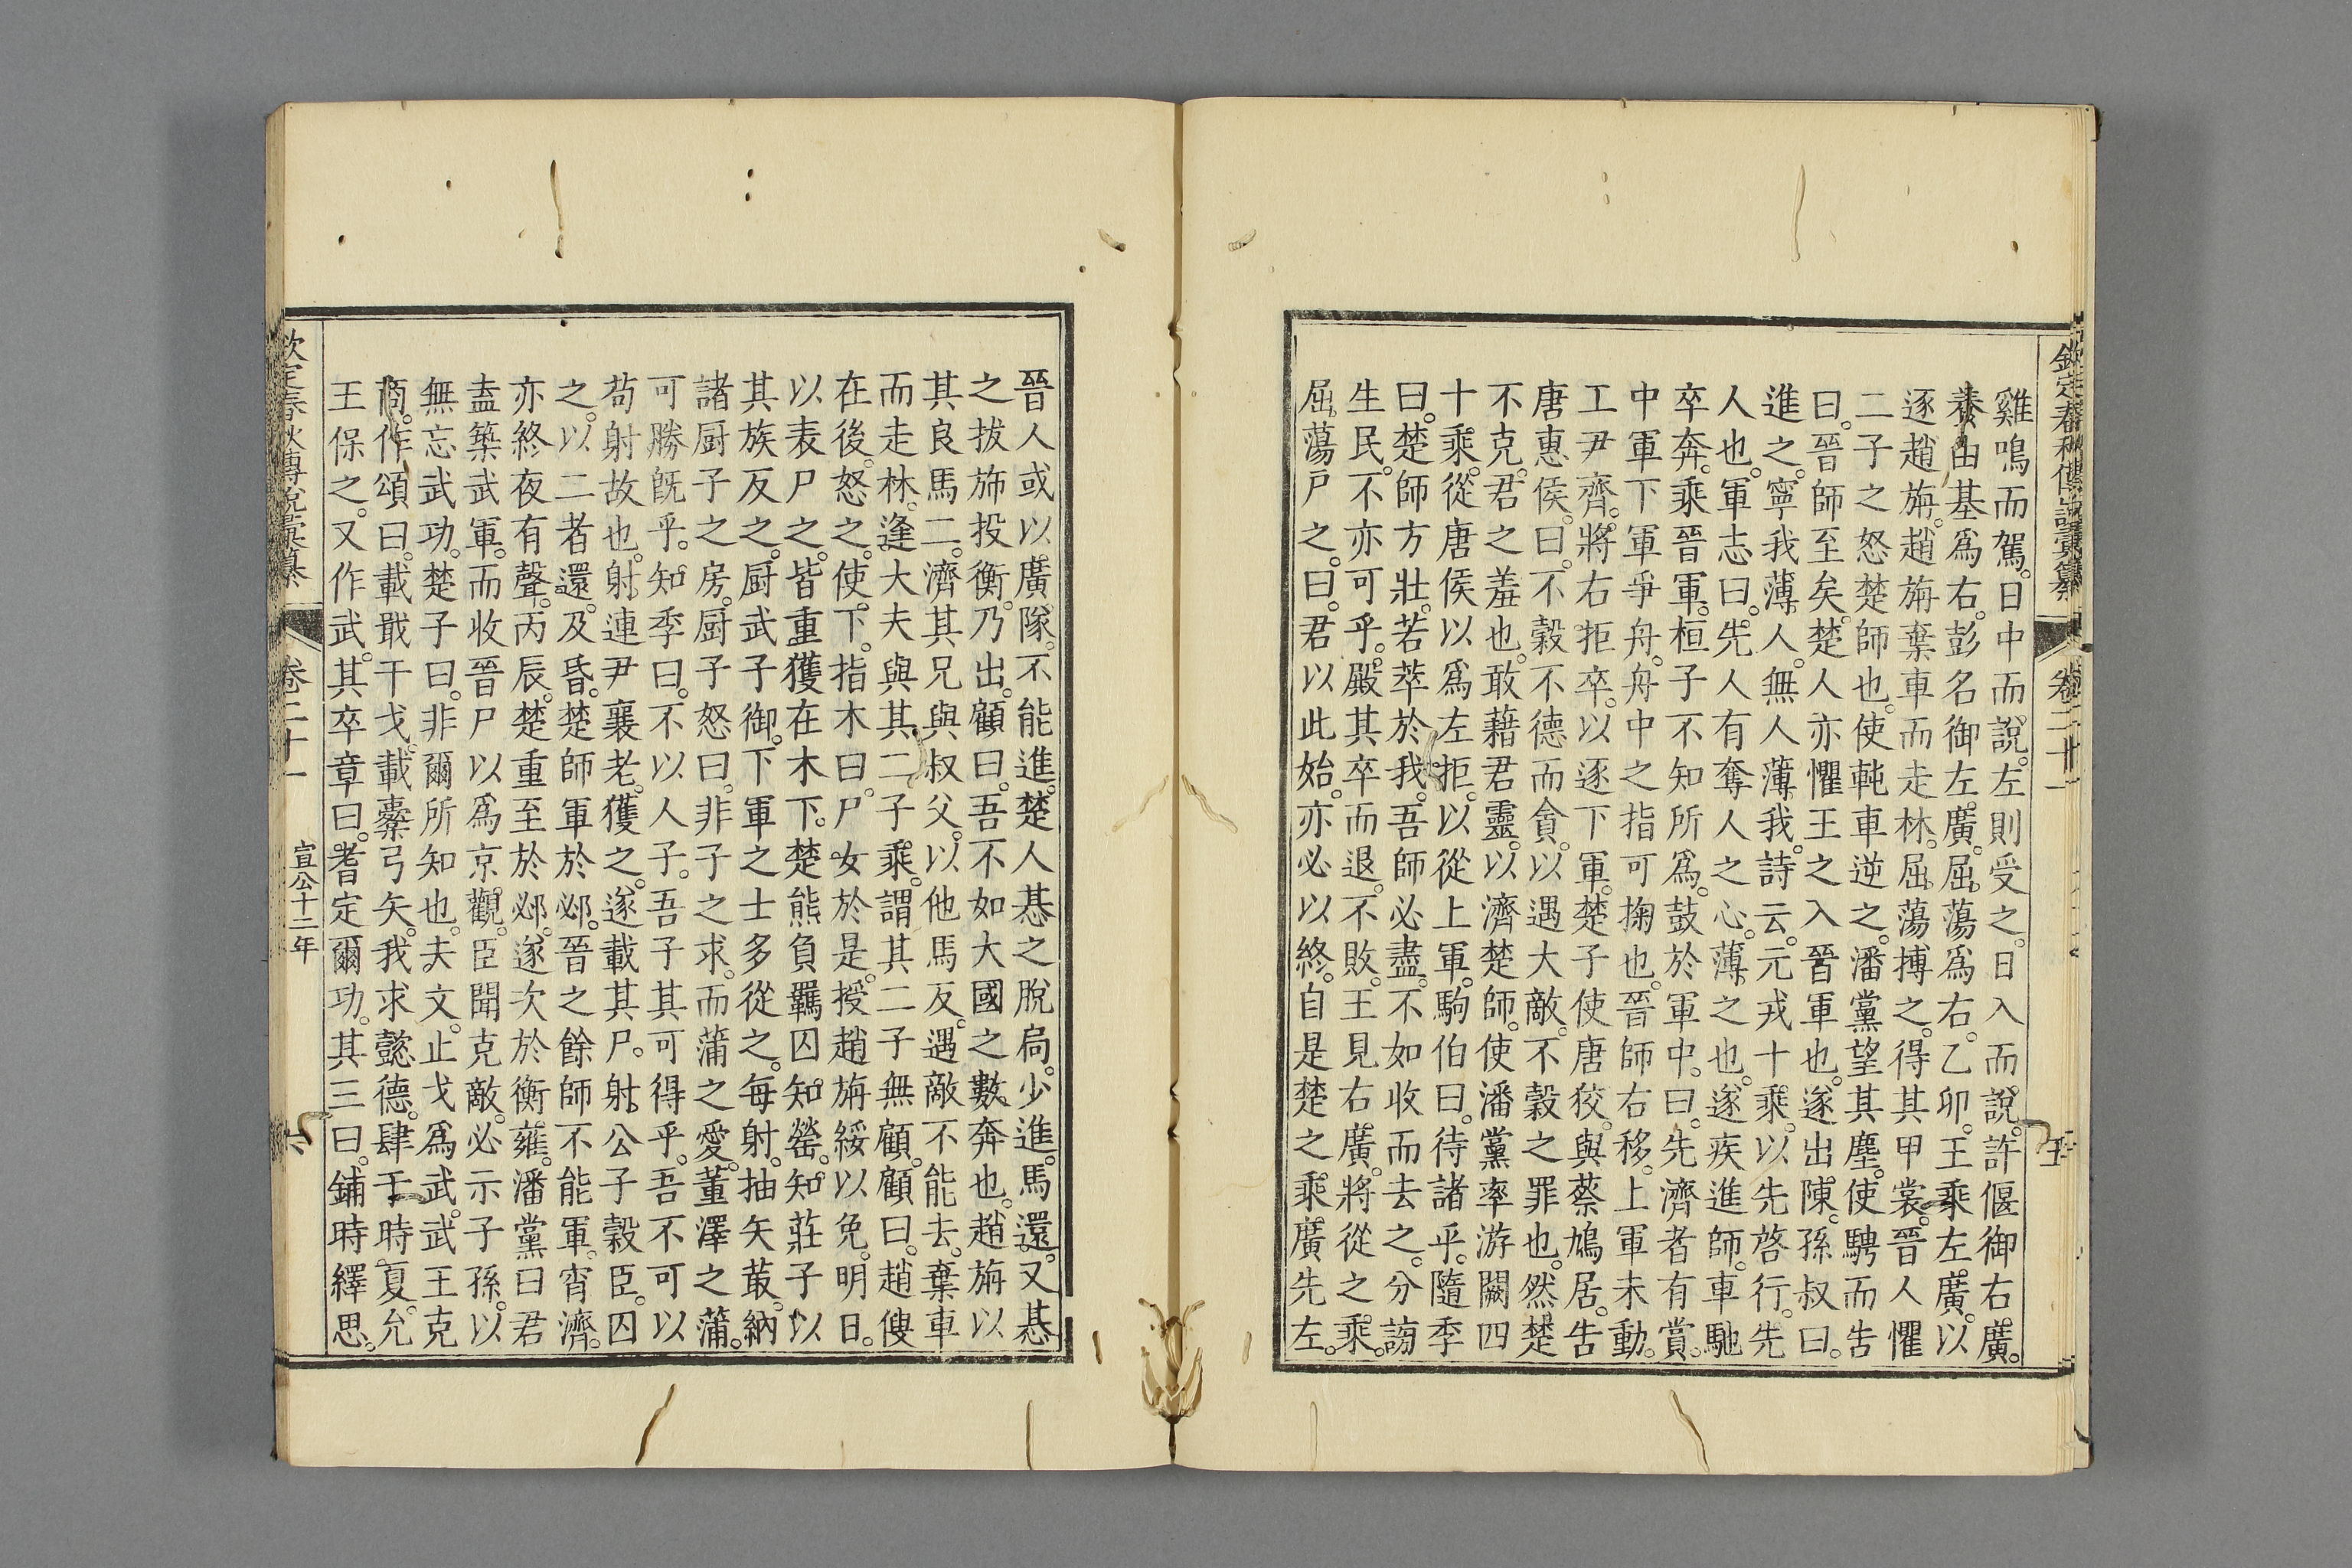 欽定春秋傳說彙纂 卷二十一 五
雞鳴而駕。日中而說。左則受之。日入而說。許偃御右廣。
養由基爲右。彭名御左廣。屈蕩爲右。乙卯。王乘左廣。以
逐趙旃。趙旃棄車而走林。屈蕩搏之。得其甲裳。晉人懼
二子之怒楚師也。使軘車逆之。潘黨望其塵。使騁而告
曰。晉師至矣。楚人亦懼王之入晉軍也。遂出陳。孫叔曰。
進之。寧我薄人。無人薄我。詩云。元戎十乘。以先啓行。先
人也。軍志曰。先人有奪人之心。薄之也。遂疾進師。車馳
卒奔。乘晉軍。桓子不知所爲。鼓於軍中。曰。先濟者有賞。
中軍下軍爭舟。舟中之指可掬也。晉師右移。上軍未動。
工尹齊。將右拒卒。以逐下軍。楚子使唐狡。與蔡鳩居。告
唐惠侯。曰。不穀不德而貪。以遇大敵。不穀之罪也。然楚
不克。君之羞也。敢藉君靈。以濟楚師。使潘黨率游闕四
十乘。從唐侯以爲左拒。以從上軍。駒伯曰。待諸乎。隨季
曰。楚師方壯。若萃於我。吾師必盡。不如收而去之。分謗
生民。不亦可乎。殿其卒而退。不敗。王見右廣。將從之乘。
屈蕩尸之。曰。君以此始。亦必以終。自是楚之乘廣先左。
晉人或以廣隊。不能進。楚人惎之脫扃。少進。馬還。又惎
之拔斾投衡。乃出。顧曰。吾不如大國之數奔也。趙旃以
其良馬二。濟其兄與叔父。以他馬反。遇敵不能去。棄車
而走林。逢大夫與其二子乘。謂其二子無顧。顧曰。趙傁
在後。怒之。使下。指木曰。尸女於是。授趙旃綏以免。明日。
以表尸之。皆重獲在木下。楚熊負羈囚。知罃。知莊子以
其族反之。厨武子御。下軍之士多從之。每射。抽矢菆。納
諸厨子之房。厨子怒曰。非子之求。而蒲之愛。董澤之蒲。
可勝旣乎。知季曰。不以人子。吾子其可得乎。吾不可以
苟射故也。射連尹襄老。獲之。遂載其尸。射公子穀臣。囚
之。以二者還。及昏。楚師軍於邲。晉之餘師不能軍。宵濟。
亦終夜有聲。丙辰。楚重至於邲。遂次於衡雍。潘黨曰君
盍築武軍。而收晉尸以爲京觀。臣聞克敵。必示子孫。以
無忘武功。楚子曰。非爾所知也。夫文。止戈爲武。武王克
商。作頌曰。載戢干戈。載櫜弓矢。我求懿德。肆于時夏。允
王保之。又作武。其卒章曰。耆定爾功。其三曰。鋪時繹思。
欽定春秋傳說彙纂 卷二十一 宣公十二年 六